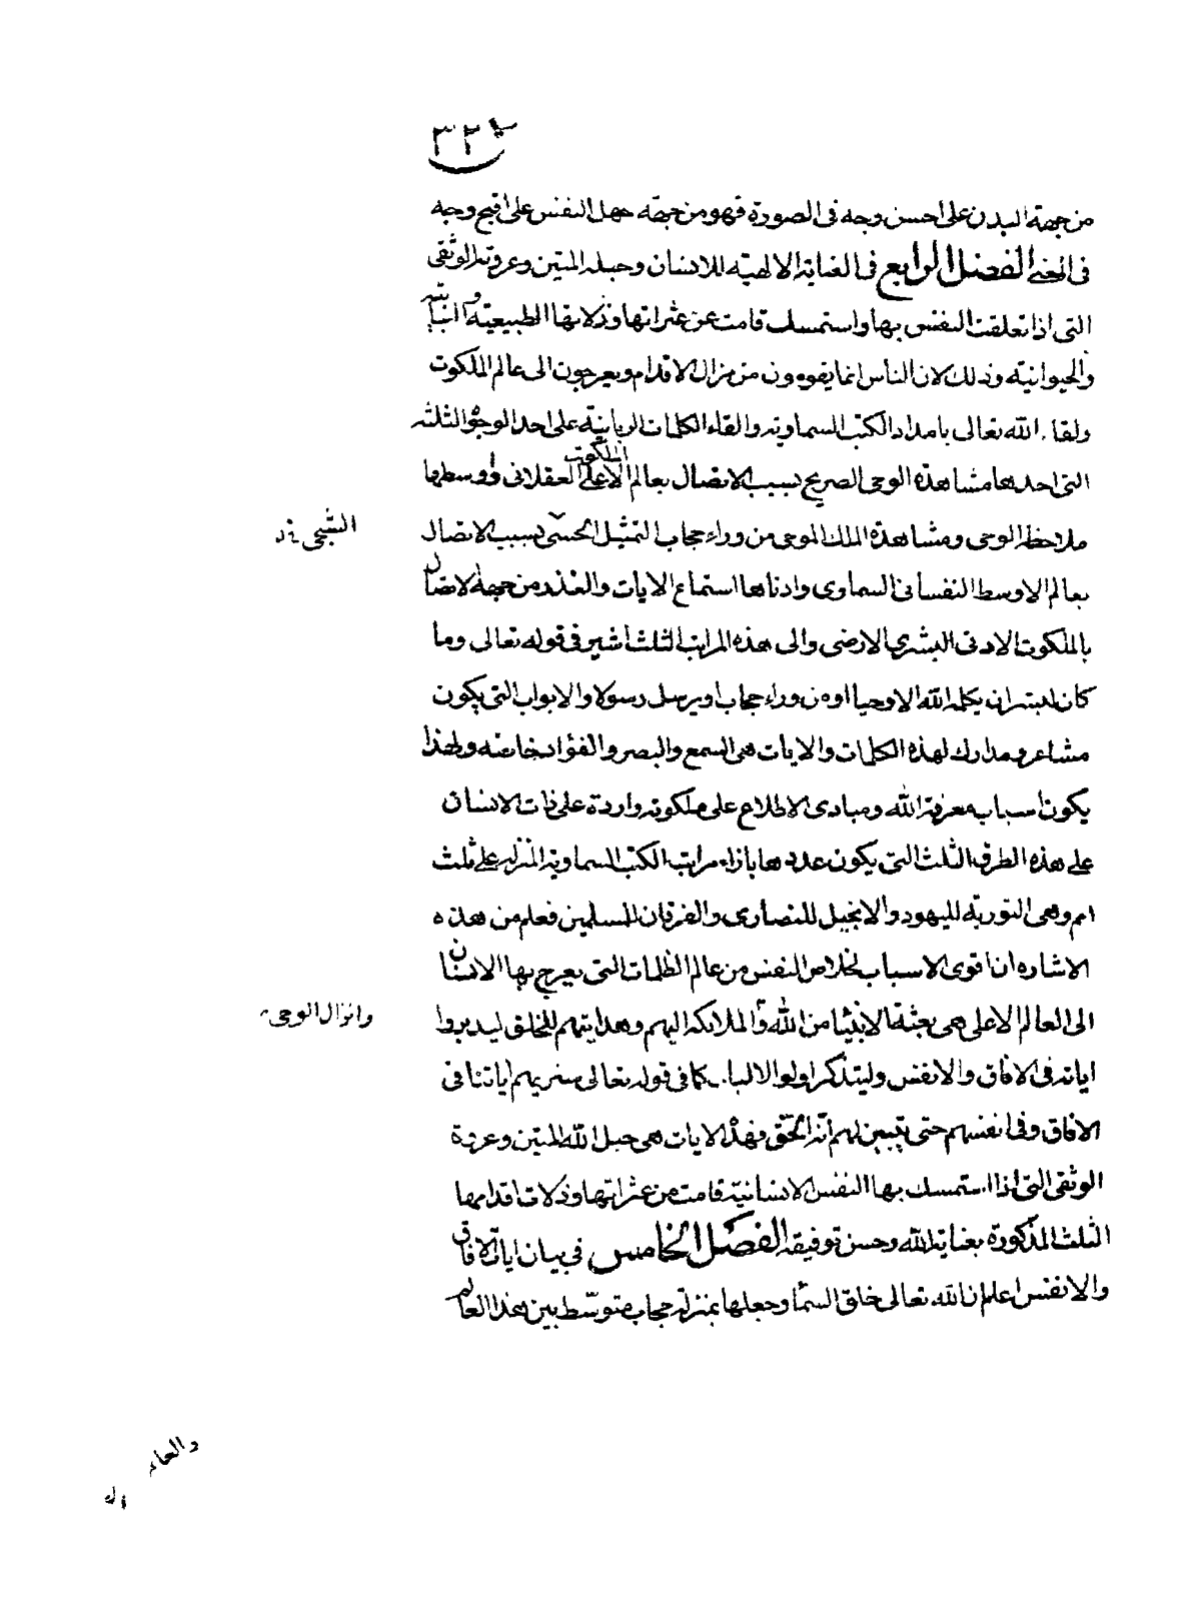 ٣٢٤
من جهة البدن على احسن وجه فى الصورة فهو من جهة جهل النفس على اقبح وجه
فى المعنى الفصل الرابع فى العناية الالهية للانسان وحبله المتين وعروته الوثقى
التى اذا تعلقت النفس بها واستمسك قامت عن عثراتها وذلاتها الطبيعية والنباتية
والحيوانية وذلك لان الناس انما يقومون من مزال الاقدام ويعرجون الى عالم الملكوت
ولقاء الله تعالى بامداد الكتب السماوية والقاء الكلمات الربانية على احد الوجوه الثلثه
التى احدها مشاهدة الوحى الصريح بسبب الاتصال بعالم الملكوت الاعلى العقلانى واوسطها
ملاحظة الوحى ومشاهدة الملك الموحى من وراء حجاب التمثيل الحسى بسبب الاتصال
الشبحى
بعالم الاوسط النفسانى السماوى وادناها استماع الايات والنذر من جهة الاتصال
بالملكوت الادنى البشرى الارضى والى هذه المراتب الثلث اشير فى قوله تعالى وما
كان لبشر ان يكلمه الله الا وحيا او من وراء حجاب او يرسل رسولا والابواب التى يكون
مشاعر ومدارك لهذه الكلمات والايات هى السمع والبصر والفؤاد خاصه ولهذا
يكون اسباب معرفة الله ومبادى الاطلاع على ملكوته واردة على ذات الانسان
على هذه الطرق الثلث التى يكون عددها بازاء مراتب الكتب السماوية المنزلة على ثلث
امم وهى التورية لليهود والانجيل للنصارى والفرقان للمسلمين فعلم من هذه
الاشاره ان اقوى الاسباب لخلاص النفس من عالم الظلمات التى يعرج بها الانسان
الى العالم الاعلى هى بعثة الانبيا من الله والملائكه اليهم وهدايتهم للخلق ليدبروا
وانزال الوحى
اياته فى الافاق والانفس وليتذكر اولو الالباب كما فى قوله تعالى سنريهم اياتنا فى
الافاق وفى انفسهم حتى تبين لهم انه الحق فهذه الايات هى حبل الله المتين وعروة
الوثقى التى اذا استمسك بها النفس الانسانية قامت من عثراتها وذلات اقدامها
الثلث المذكورة بعناية الله وحسن توفيقه الفصل الخامس فى بيان ايات الافاق
والانفس اعلم ان الله تعالى خلق السما وجعلها بمنزلة حجاب متوسط بين هذا العالم
والعا